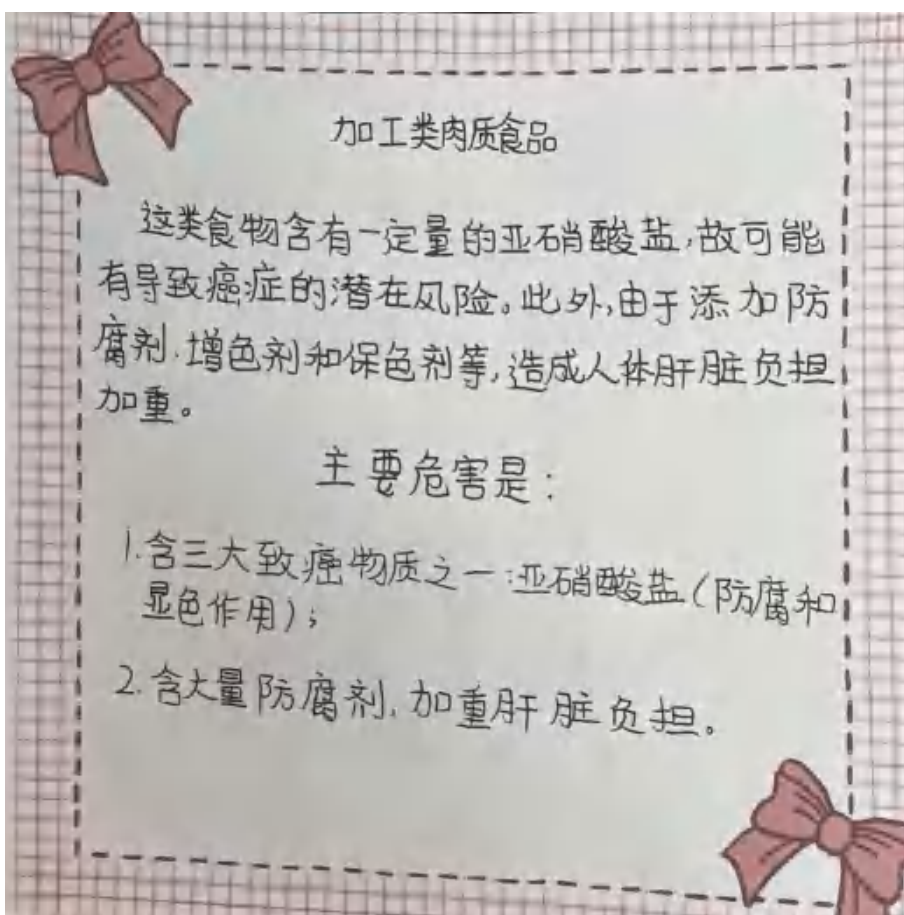 加工类肉质食品
这类食物含有一定量的亚硝酸盐,故可能
有导致癌症的潜在风险。此外,由于添加防
腐剂、增色剂和保色剂等,造成人体肝脏负担
加重。
主要危害是:
1.含三大致癌物质之一:亚硝酸盐(防腐和
显色作用);
2.含大量防腐剂,加重肝脏负担。